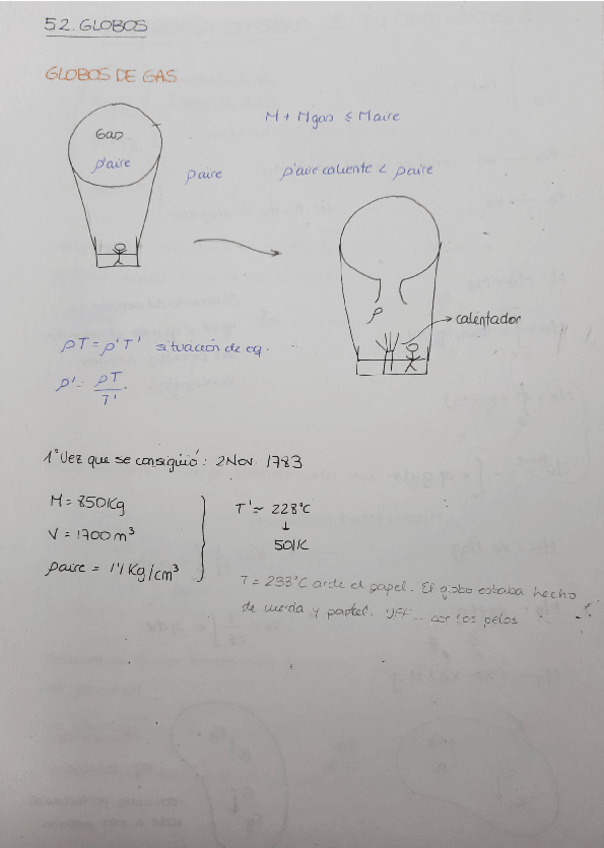 5.2. GLOBOS
GLOBOS DE GAS
Gas
ρ'aire
ρaire
M + Mgas ≤ Maire
ρ'aire caliente < ρaire
ρ
calentador
ρT = ρ'T' situación de eq.
ρ' = ρT/T'
1ª Vez que se consiguió: 2 Nov 1783
M = 850Kg
V = 1700 m³
ρaire = 1'1 Kg/cm³
T' = 228°C
↓
501K
T = 233°C arde el papel. El globo estaba hecho
de y papel. UFF... por los pelos